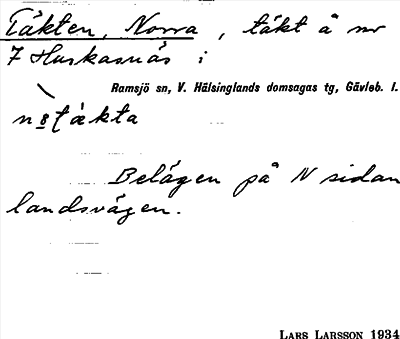 Täkten, Norra, täkt å nr
7 Huskasnäs i
Ramsjö sn, V. Hälsinglands domsagas tg, Gävleb. l.
Belägen på N sidan
landsvägen.
LARS LARSSON 1934